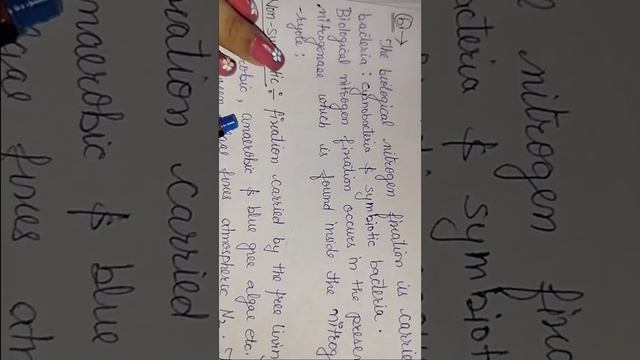 (b) →
The biological nitrogen fixation is carrie
bacteria: cyanobacteria & symbiotic bacteria.
Biological nitrogen fixation occurs in the presen
nitrogenase which is found inside the nitrog
-ryote;
Non-sym tic:- fixation carried by the free livin
robic, anaerobic & blue gree algae etc.
ae fixes atmospheric N2.